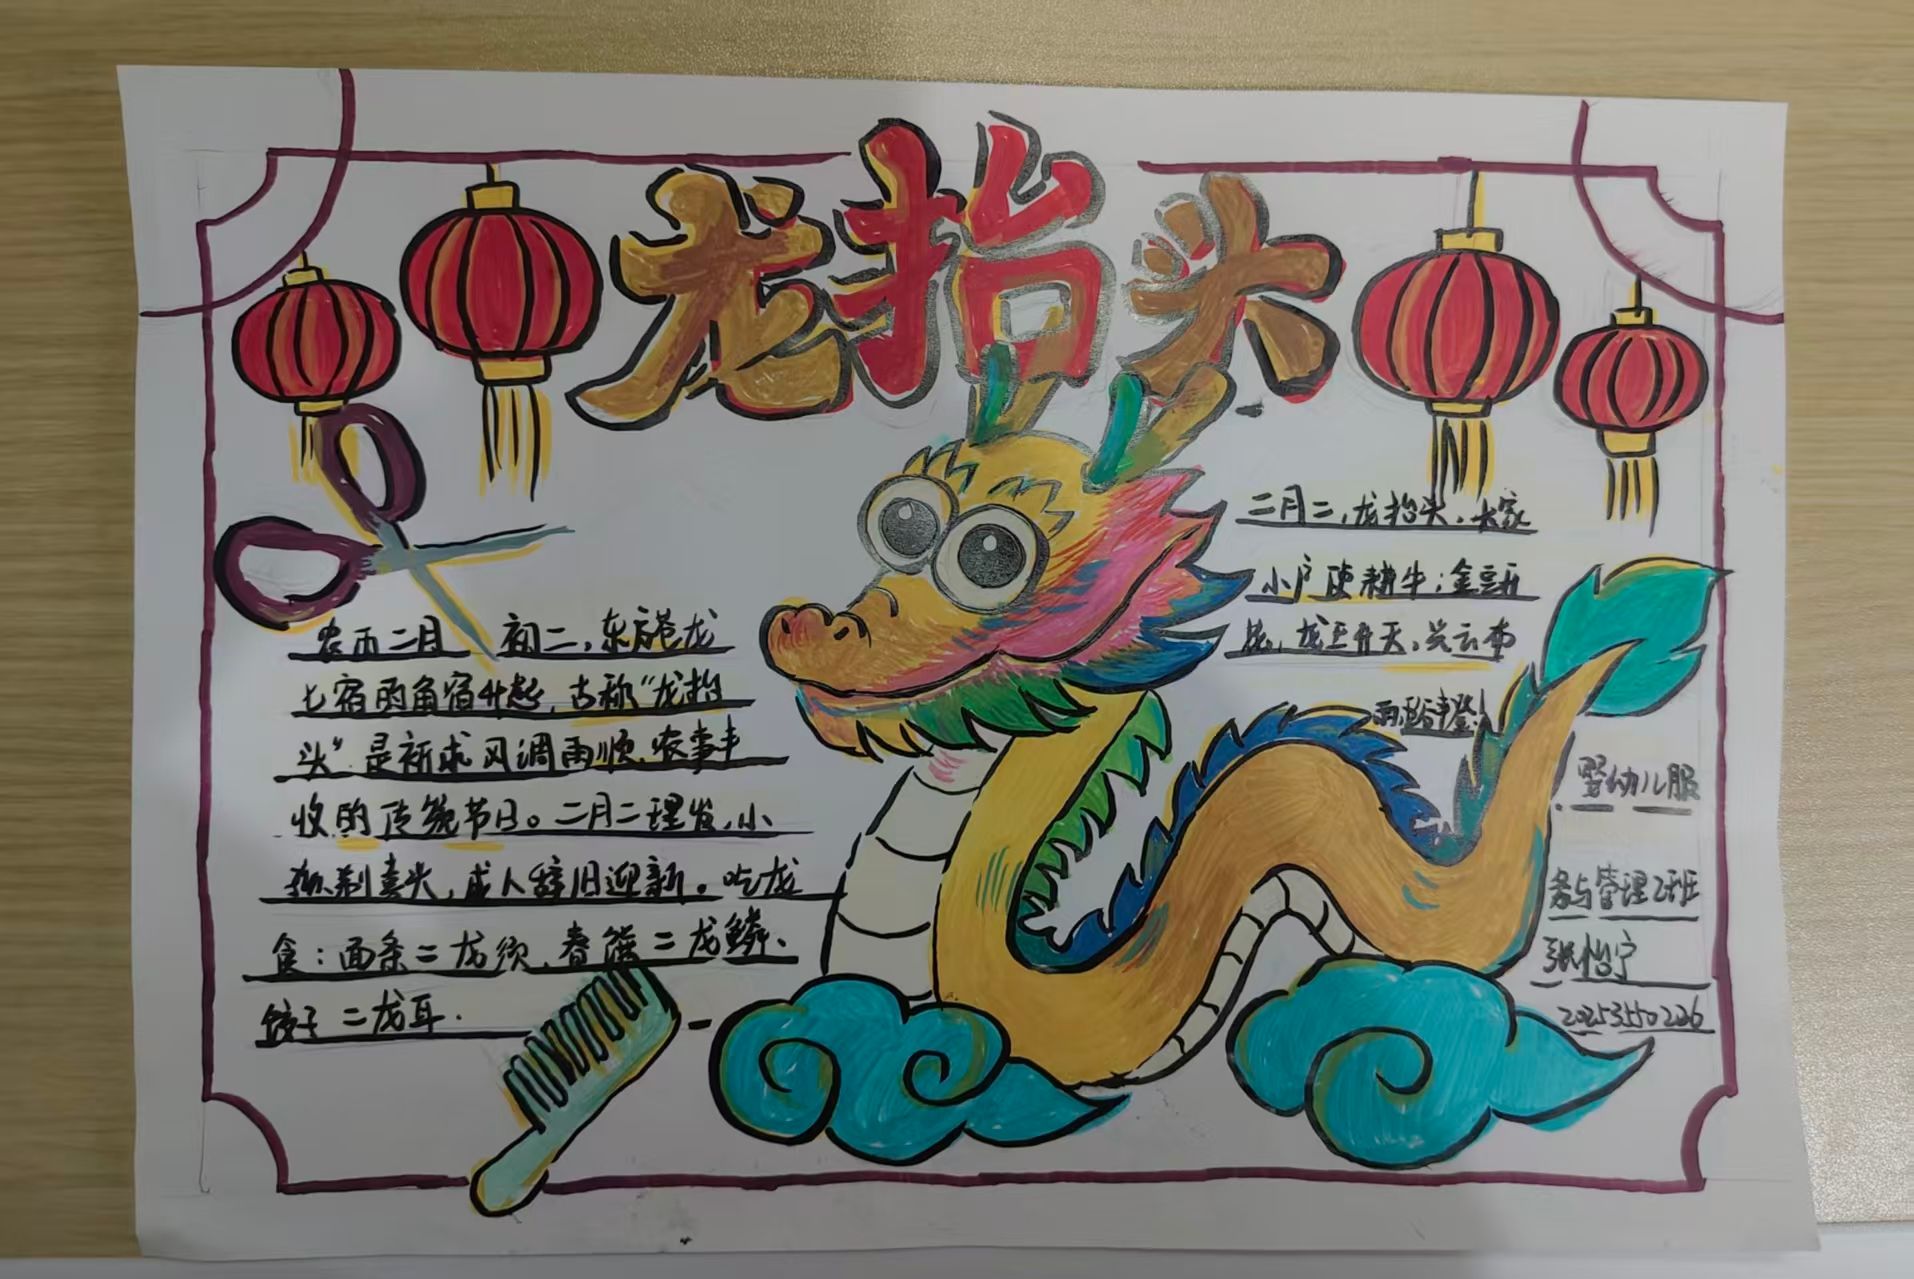 龙抬头
农历二月 初二,东方苍龙
七宿的角宿升起,古称“龙抬
头”是祈求风调雨顺,农事丰
收的传统节日。二月二理发,小
孩剃喜头,成人辞旧迎新。吃龙
食:面条二龙须、春饼二龙鳞、
饺子二龙耳.
二月二,龙抬头,大家
小户使耕牛;金豆开
龙王升天,兴云布
雨
婴幼儿服
务与管理2班
张怡宁
2025350226